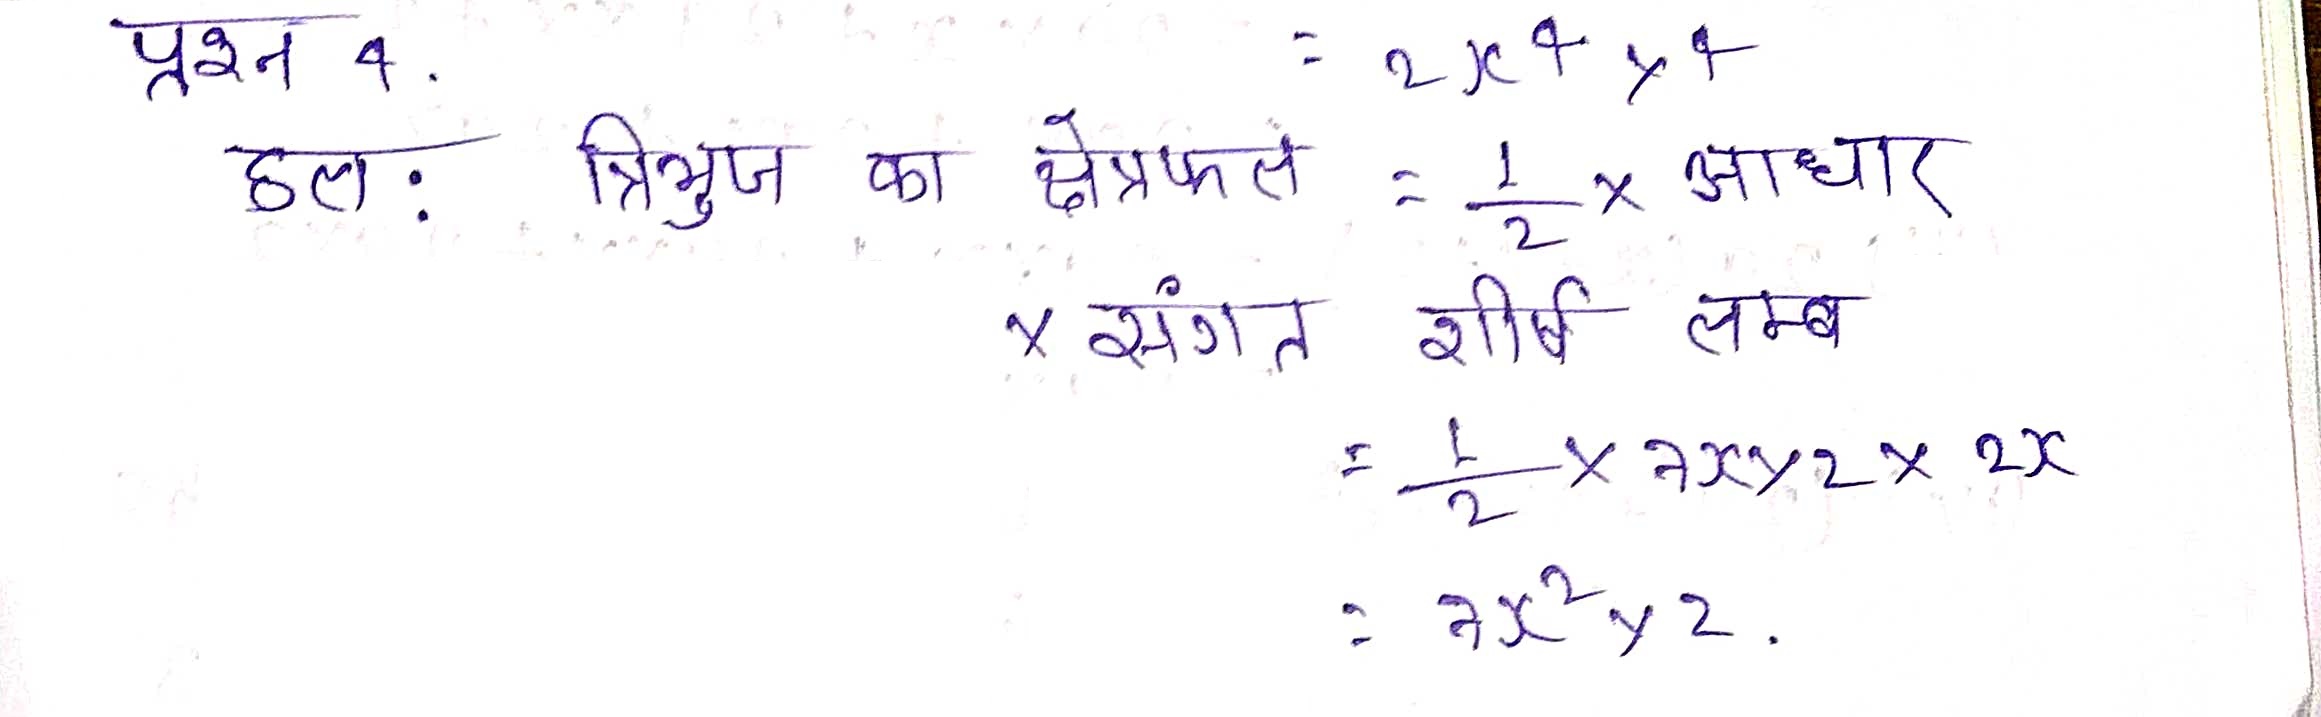 प्रश्न 4.
= 2x⁴y⁴
हल : त्रिभुज का क्षेत्रफल = 1/2 × आधार
× संगत शीर्ष लम्ब
= 1/2 × 7xy2 × 2x
= 7x²y2.